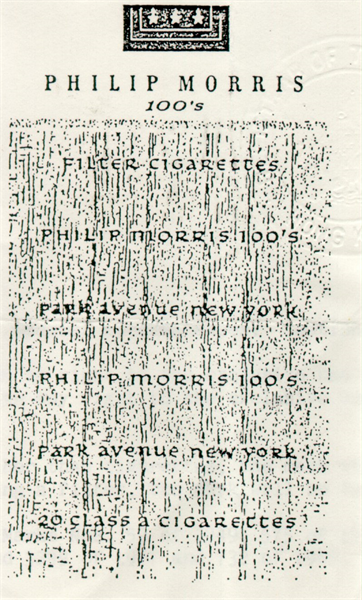 PHILIP MORRIS
100's
FILTER CIGARETTES
PHILIP MORRIS 100'S
PARK AVENUE NEW YORK
PHILIP MORRIS 100'S
PARK AVENUE NEW YORK
20 CLASS A CIGARETTES